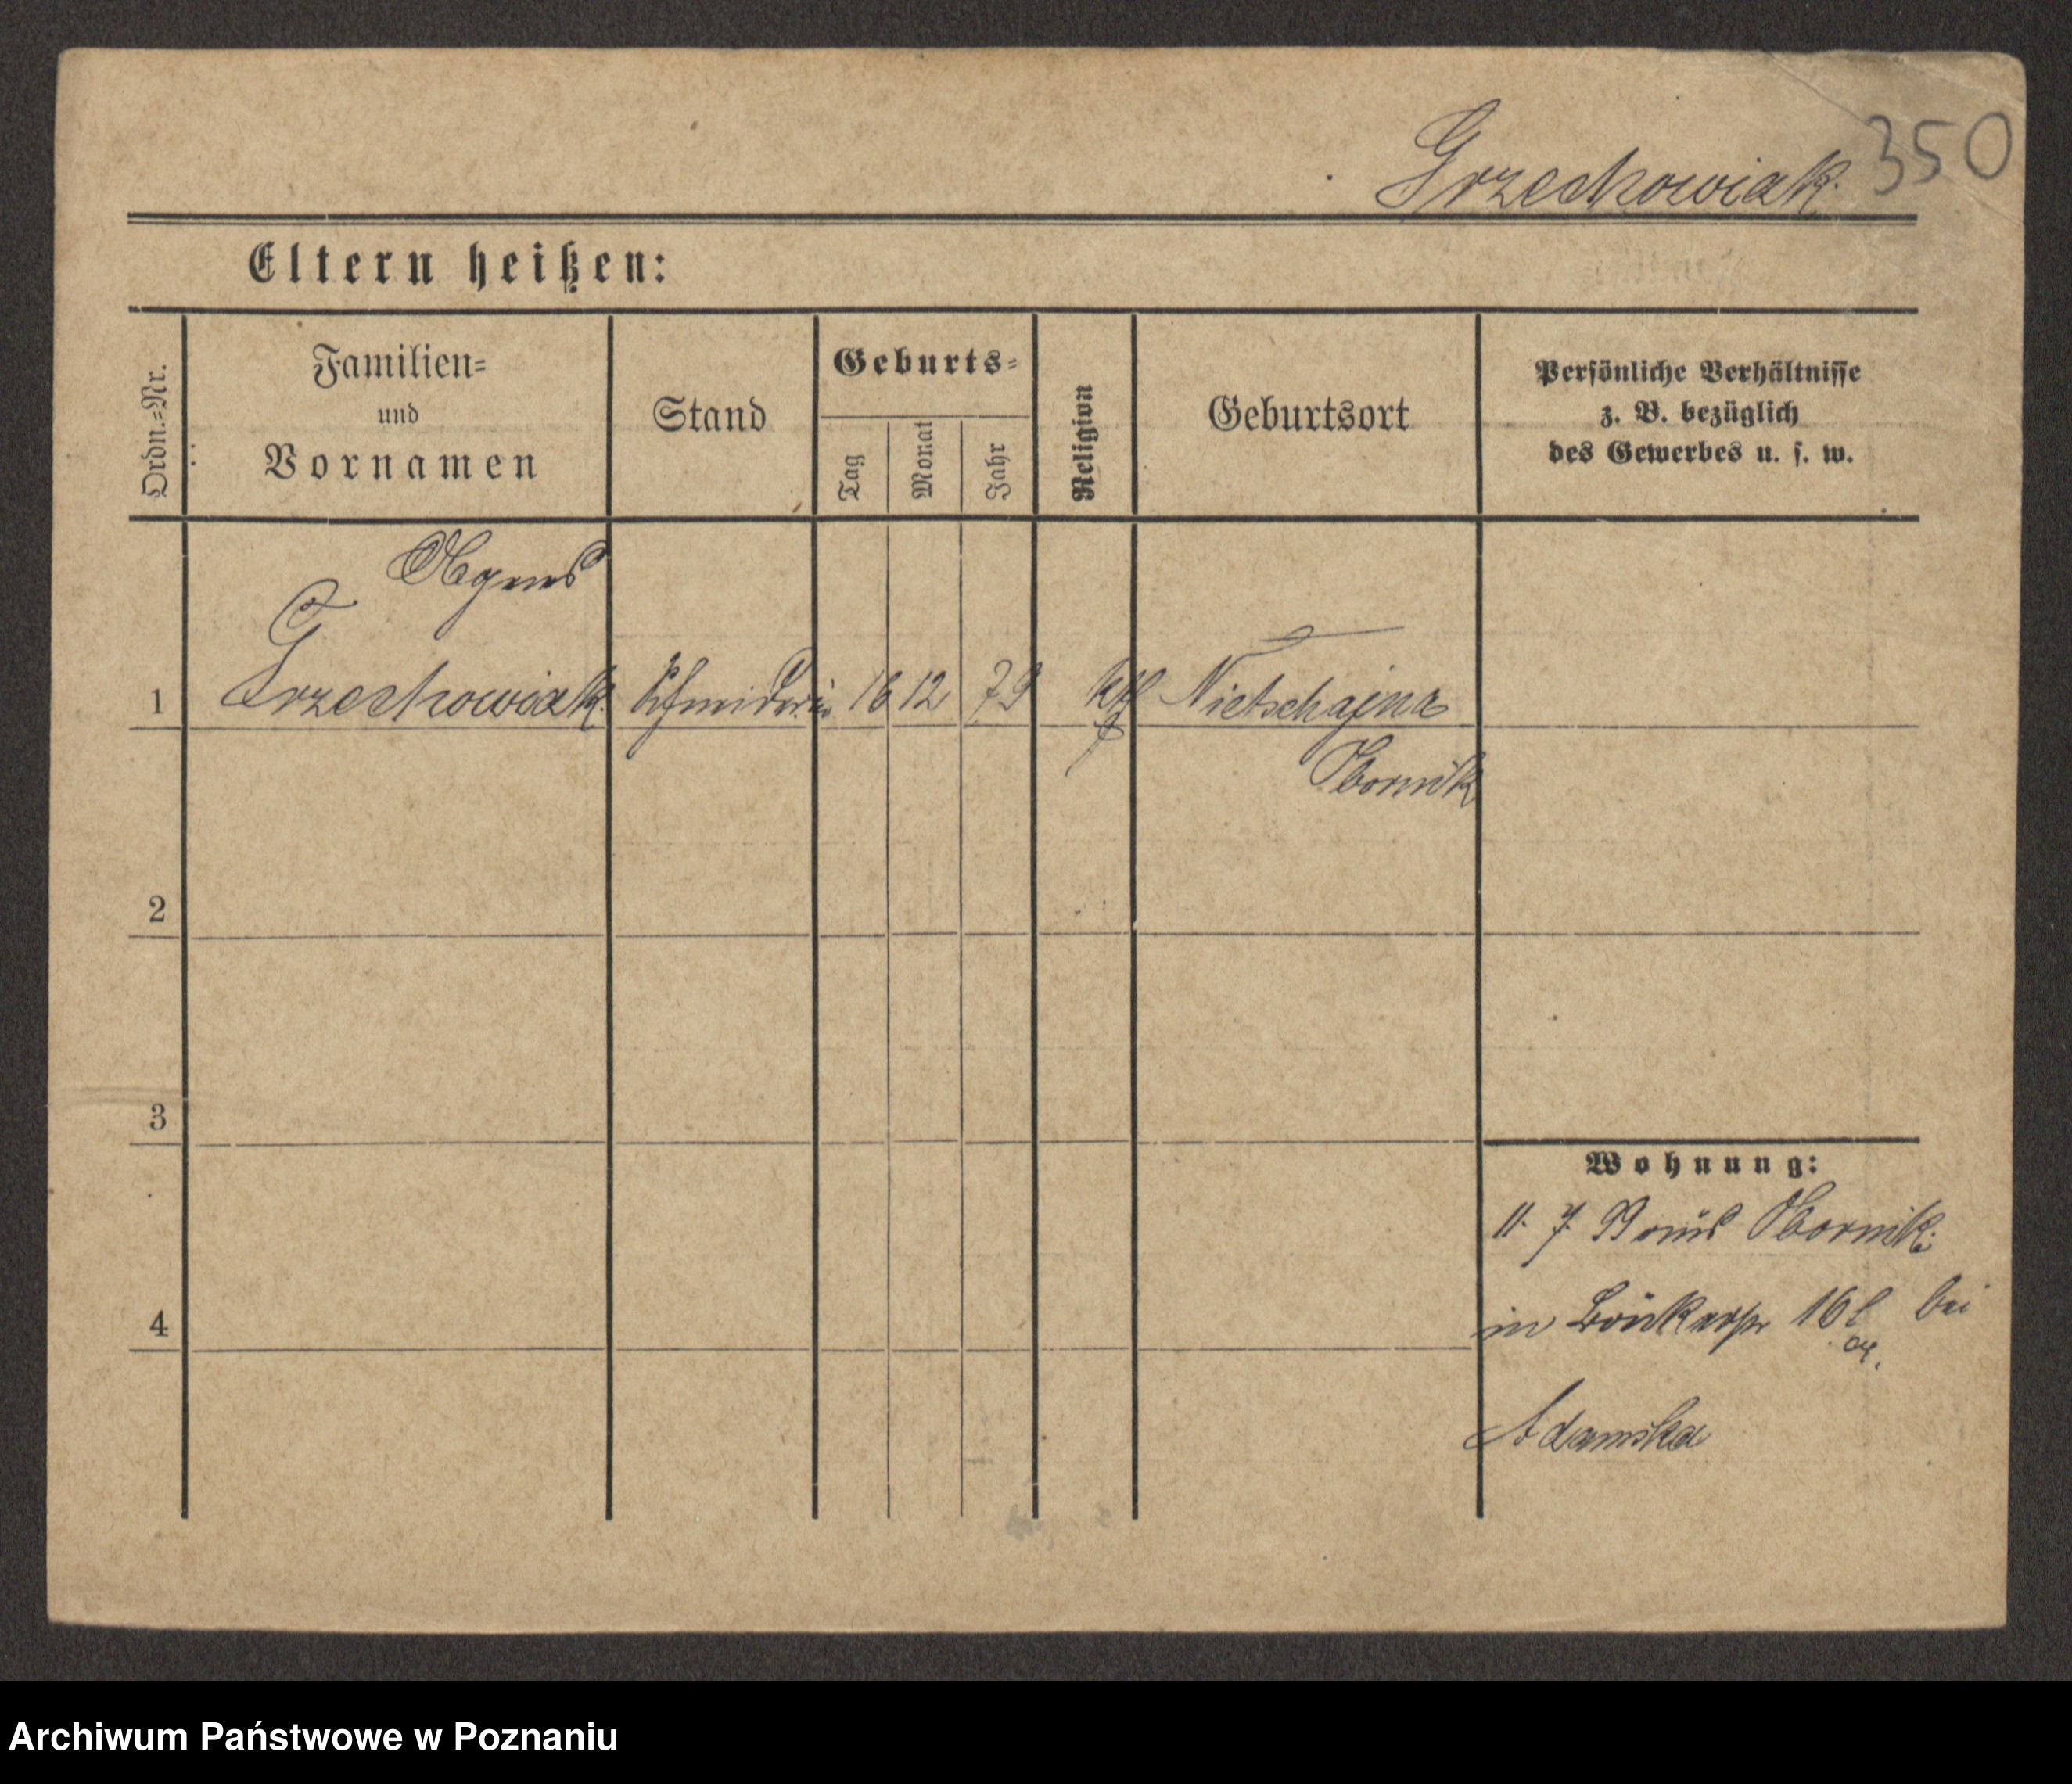 350
Grzechowiak.
Eltern heißen:
Ordn.=Nr.
Familien=
und
Vornamen
Stand
Geburts=
Tag
Monat
Jahr
Religion
Geburtsort
Persönliche Verhältnisse
z. B. bezüglich
des Gewerbes u. s. w.
Agnes
1 Grzechowiak Schneiderin 16 12 79 kth Nietschajna
Obornik
2
3
4
Wohnung:
11. 7. 99 aus Obornik.
in 16 bei
Adamska
Archiwum Państwowe w Poznaniu